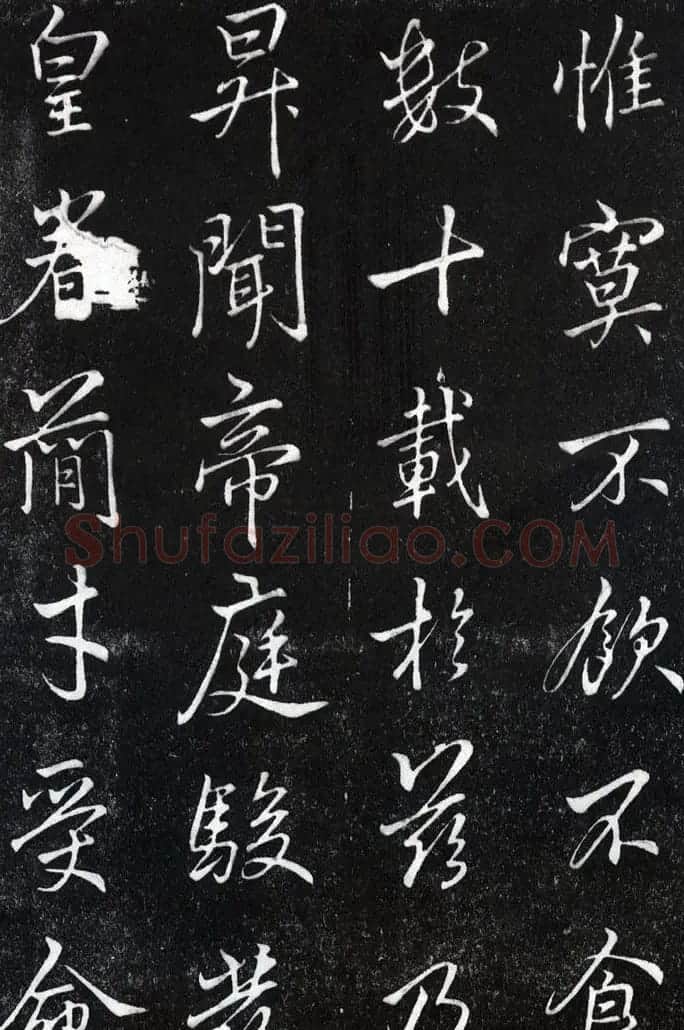 惟寞不飲不食
數十載於茲乃
昇聞帝庭駿
皇眷簡才受命
Shufaziliao.COM